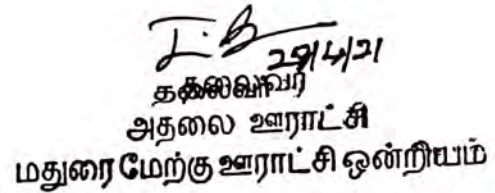 29/4/21
தலைவர்
அதலை ஊராட்சி
மதுரை மேற்கு ஊராட்சி ஒன்றியம்